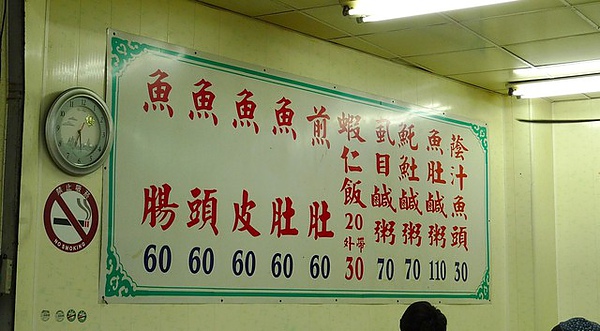 蔭汁魚頭 30
魚肚鹹粥 110
魠𩵚鹹粥 70
虱目鹹粥 70
蝦仁飯 20 外帶 30
煎肚 60
魚肚 60
魚皮 60
魚頭 60
魚腸 60
禁止吸菸
NO SMOKING